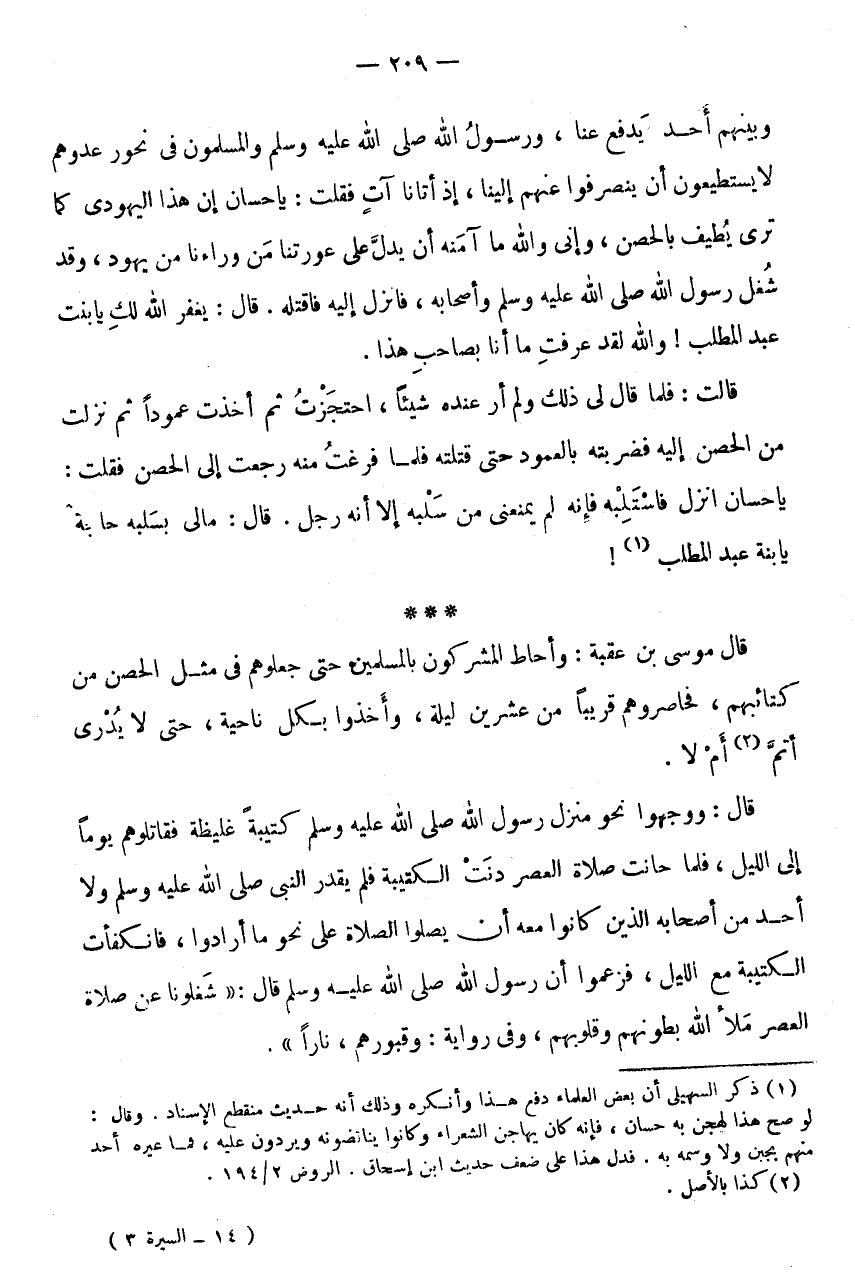 — ٢٠٩ —
وبينهم أَحـد يَدفع عنا ، ورسـولُ الله صلى الله عليه وسلم والمسلمون فى نحور عدوهم
لايستطيعون أن ينصرفوا عنهم إلينا ، إذ أتانا آتٍ فقلت : ياحسان إن هذا اليهودى كما
ترى يُطيف بالحصن ، وإنى والله ما آمَنه أن يدلَّ على عورتنا مَن وراءنا من يهود ، وقد
شُغل رسول الله صلى الله عليه وسلم وأصحابه ، فانزل إليه فاقتله . قال : يغفر الله لكِ يابنت
عبد المطلب ! والله لقد عرفتِ ما أنا بصاحبِ هذا .
قالت : فلما قال لى ذلك ولم أر عنده شيئاً ، احتجَزْتُ ثم أخذت عموداً ثم نزلت
من الحصن إليه فضربته بالعمود حتى قتلته فلمـا فرغتُ منه رجعت إلى الحصن فقلت :
ياحسان انزل فاسْتَلِبْه فإِنه لم يمنعنى من سَلْبه إلا أنه رجل . قال : مالى بسَلبه حا بة
يابنة عبد المطلب (١) !
***
قال موسى بن عقبة : وأحاط المشركون بالمسلمين حتى جعلوهم فى مثـل الحصن من
كتائبهم ، فحاصروهم قريباً من عشرين ليلة ، وأَخذوا بـكل ناحية ، حتى لا يُدْرى
أتمَّ (٢) أَمْ لا .
قال : ووجهوا نحو منزل رسول الله صلى الله عليه وسلم كتيبةً غليظة فقاتلوهم يوماً
إلى الليل ، فلما حانت صلاة العصر دنَتْ الـكتيبة فلم يقدر النبى صلى الله عليه وسلم ولا
أحـد من أصحابه الذين كانوا معه أن يصلوا الصلاة على نحو ما أرادوا ، فانـكفأت
الـكتيبة مع الليل ، فزعموا أن رسول الله صلى الله عليـه وسلم قال :« شَغلونا عن صلاة
العصر مَلأ الله بطونهم وقلوبهم ، وفى رواية : وقبورهم ، ناراً » .
(١) ذكر السهيلى أن بعض العلماء دفع هـذا وأنـكره وذلك أنه حـديث منقطع الإسناد . وقال :
لو صح هذا لهجن به حسان ، فإنه كان يهاجن الشعراء وكانوا يناقضونه ويردون عليه ، فمـا عيره أحد
منهم بجبن ولا وسمه به . فدل هذا على ضعف حديث ابن إسحاق . الروض ١٩٤/٢ .
(٢) كذا بالأصل .
( ١٤ – السيرة ٣ )